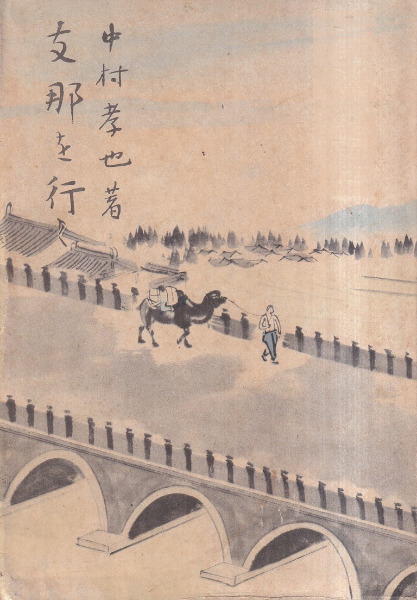 中村孝也著
支那を行く